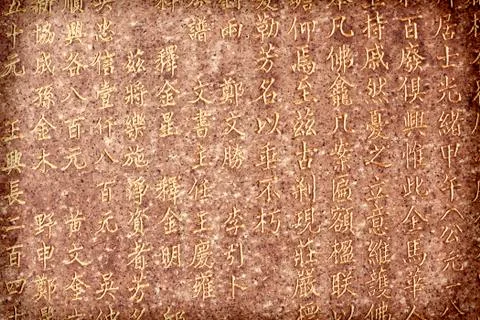 居士光緒甲午(公元一八
百廢俱興惟此金馬華人
持戚然憂之立意維護佛
本凡佛龕几案匾額楹聯以
仰焉至茲古刹現莊嚴
勒芳名以垂不朽
雨 鄭文勝 李引卜
譜 文書主任王慶
釋金星 釋金明
茲將樂施淨資者芳名
忠信壹仟八百元 吳
順興各八百元 黃文奎
協成孫金木 野申鄭
五十元 王興長二百四十